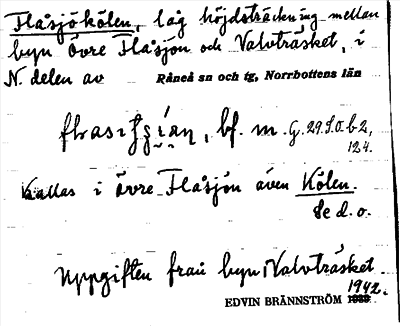 Flåsjökölen, låg höjdsträckning mellan
byn Övre Flåsjön och Valvträsket, i
N. delen av Råneå sn och tg, Norrbottens län
bf. m. G. 29.S.O.b.2,
124.
Kallas i Övre Flåsjön även Kölen.
Se d. o.
Uppgiften från byn Valvträsket
1942.
EDVIN BRÄNNSTRÖM